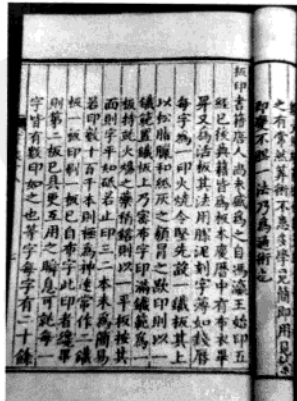 之有常然算術不患多學見簡即用見繁
即變不膠一法乃爲通術也
板印書籍唐人尚未盛爲之自馮瀛王始印五
經已後典籍皆爲板本慶曆中有布衣畢
昇又爲活板其法用膠泥刻字薄如錢唇
每字爲一印火燒令堅先設一鐵板其上
以松脂臘和紙灰之類冒之欲印則以一
鐵範置鐵板上乃密布字印滿鐵範爲一
板持就火煬之藥稍鎔則以一平板按其
面則字平如砥若止印三二本未爲簡易
若印數十百千本則極爲神速常作二鐵
板一板印刷一板已自布字此印者纔畢
則第二板已具更互用之瞬息可就每一
字皆有數印如之也等字每字有二十餘